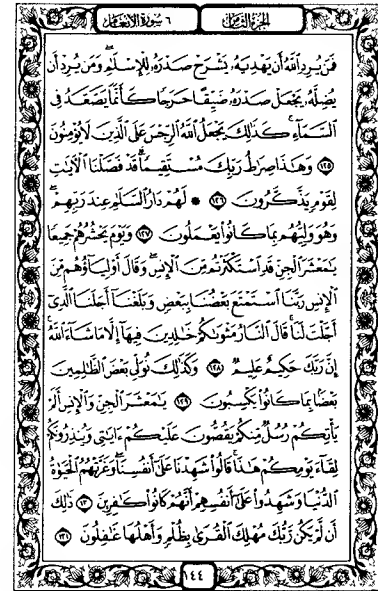 ٦ سورة الأنعام الجزء الثامن
فَمَن يُرِدِ ٱللَّهُ أَن يَهْدِيَهُۥ يَشْرَحْ صَدْرَهُۥ لِلْإِسْلَٰمِ ۖ وَمَن يُرِدْ أَن
يُضِلَّهُۥ يَجْعَلْ صَدْرَهُۥ ضَيِّقًا حَرَجًا كَأَنَّمَا يَصَّعَّدُ فِى
ٱلسَّمَآءِ ۚ كَذَٰلِكَ يَجْعَلُ ٱللَّهُ ٱلرِّجْسَ عَلَى ٱلَّذِينَ لَا يُؤْمِنُونَ
١٢٥ وَهَٰذَا صِرَٰطُ رَبِّكَ مُسْتَقِيمًا ۗ قَدْ فَصَّلْنَا ٱلْءَايَٰتِ
لِقَوْمٍ يَذَّكَّرُونَ ١٢٦ ۞ لَهُمْ دَارُ ٱلسَّلَٰمِ عِندَ رَبِّهِمْ ۖ
وَهُوَ وَلِيُّهُم بِمَا كَانُوا۟ يَعْمَلُونَ ١٢٧ وَيَوْمَ يَحْشُرُهُمْ جَمِيعًا
يَٰمَعْشَرَ ٱلْجِنِّ قَدِ ٱسْتَكْثَرْتُم مِّنَ ٱلْإِنسِ ۖ وَقَالَ أَوْلِيَآؤُهُم مِّنَ
ٱلْإِنسِ رَبَّنَا ٱسْتَمْتَعَ بَعْضُنَا بِبَعْضٍ وَبَلَغْنَآ أَجَلَنَا ٱلَّذِىٓ
أَجَّلْتَ لَنَا ۚ قَالَ ٱلنَّارُ مَثْوَىٰكُمْ خَٰلِدِينَ فِيهَآ إِلَّا مَا شَآءَ ٱللَّهُ ۗ
إِنَّ رَبَّكَ حَكِيمٌ عَلِيمٌ ١٢٨ وَكَذَٰلِكَ نُوَلِّى بَعْضَ ٱلظَّٰلِمِينَ
بَعْضًۢا بِمَا كَانُوا۟ يَكْسِبُونَ ١٢٩ يَٰمَعْشَرَ ٱلْجِنِّ وَٱلْإِنسِ أَلَمْ
يَأْتِكُمْ رُسُلٌ مِّنكُمْ يَقُصُّونَ عَلَيْكُمْ ءَايَٰتِى وَيُنذِرُونَكُمْ
لِقَآءَ يَوْمِكُمْ هَٰذَا ۚ قَالُوا۟ شَهِدْنَا عَلَىٰٓ أَنفُسِنَا ۖ وَغَرَّتْهُمُ ٱلْحَيَوٰةُ
ٱلدُّنْيَا وَشَهِدُوا۟ عَلَىٰٓ أَنفُسِهِمْ أَنَّهُمْ كَانُوا۟ كَٰفِرِينَ ١٣٠ ذَٰلِكَ
أَن لَّمْ يَكُن رَّبُّكَ مُهْلِكَ ٱلْقُرَىٰ بِظُلْمٍ وَأَهْلُهَا غَٰفِلُونَ ١٣١
١٤٤